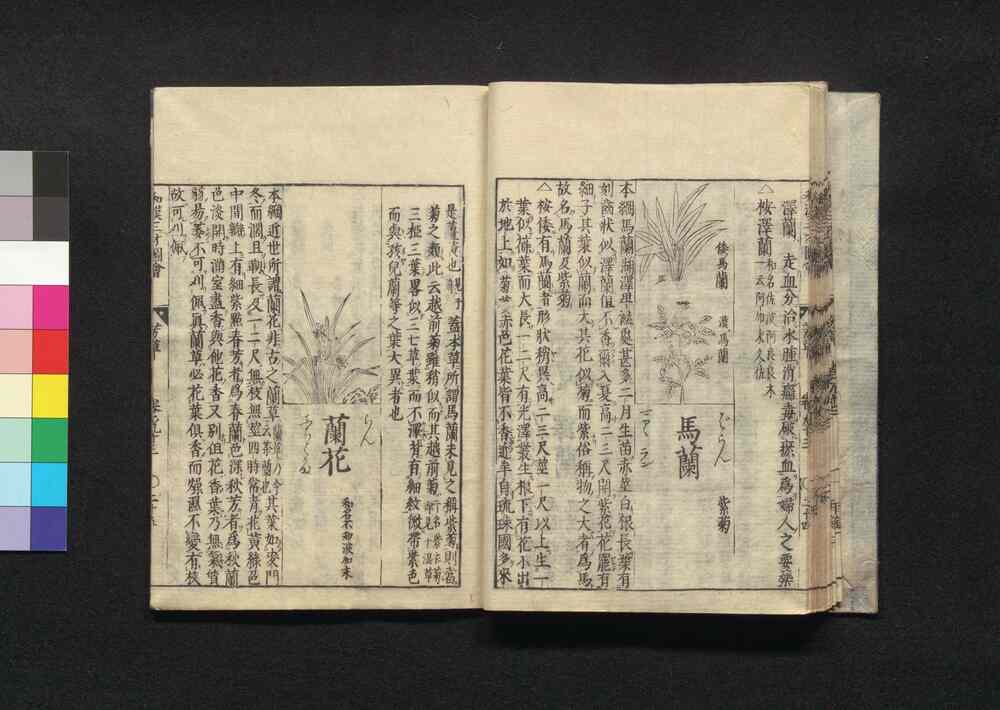 澤蘭 走血分治水腫消癰毒破瘀血為婦人之要藥
△按澤蘭
和名佐波阿良良木
一云阿加末久佐
倭馬蘭
漢馬蘭
馬蘭
ばらん
紫菊
本綱馬蘭湖澤卑濕處甚多二月生苗赤莖白根長葉有
刻齒狀似澤蘭但不香爾入夏高二三尺開紫花花罷有
細子其葉似蘭而大其花似菊而紫俗稱物之大者為馬
故名馬蘭及紫菊
△按倭有馬蘭者形狀稍異高二三尺莖一尺以上生一
葉似葆葉而大長一二尺有光澤叢生根下有花小出
於地上如菊
赤色花葉皆不香近年自琉球國多來
蓋本草所謂馬蘭未見之稱紫菊則當
菊之類此云越前菊雖稍似而其越前菊
三椏三葉畧似三七草葉而不澤背有細紋微帶紫色
而與孩兒蘭等之葉大異者也
蘭花
らん
本綱近世所謂蘭花非古之蘭草
其葉如麥門
冬而濶且靱長及一二尺無枝無莖四時常青花黃綠色
中間瓣上有細紫點春芳者為春蘭色深秋芳者為秋蘭
色淡開時滿室盡香與他花香又別但花香葉乃無氣質
弱易萎不可刈佩真蘭草必花葉俱香而燥濕不變有枝
故可刈佩
和漢三才圖會
芳草